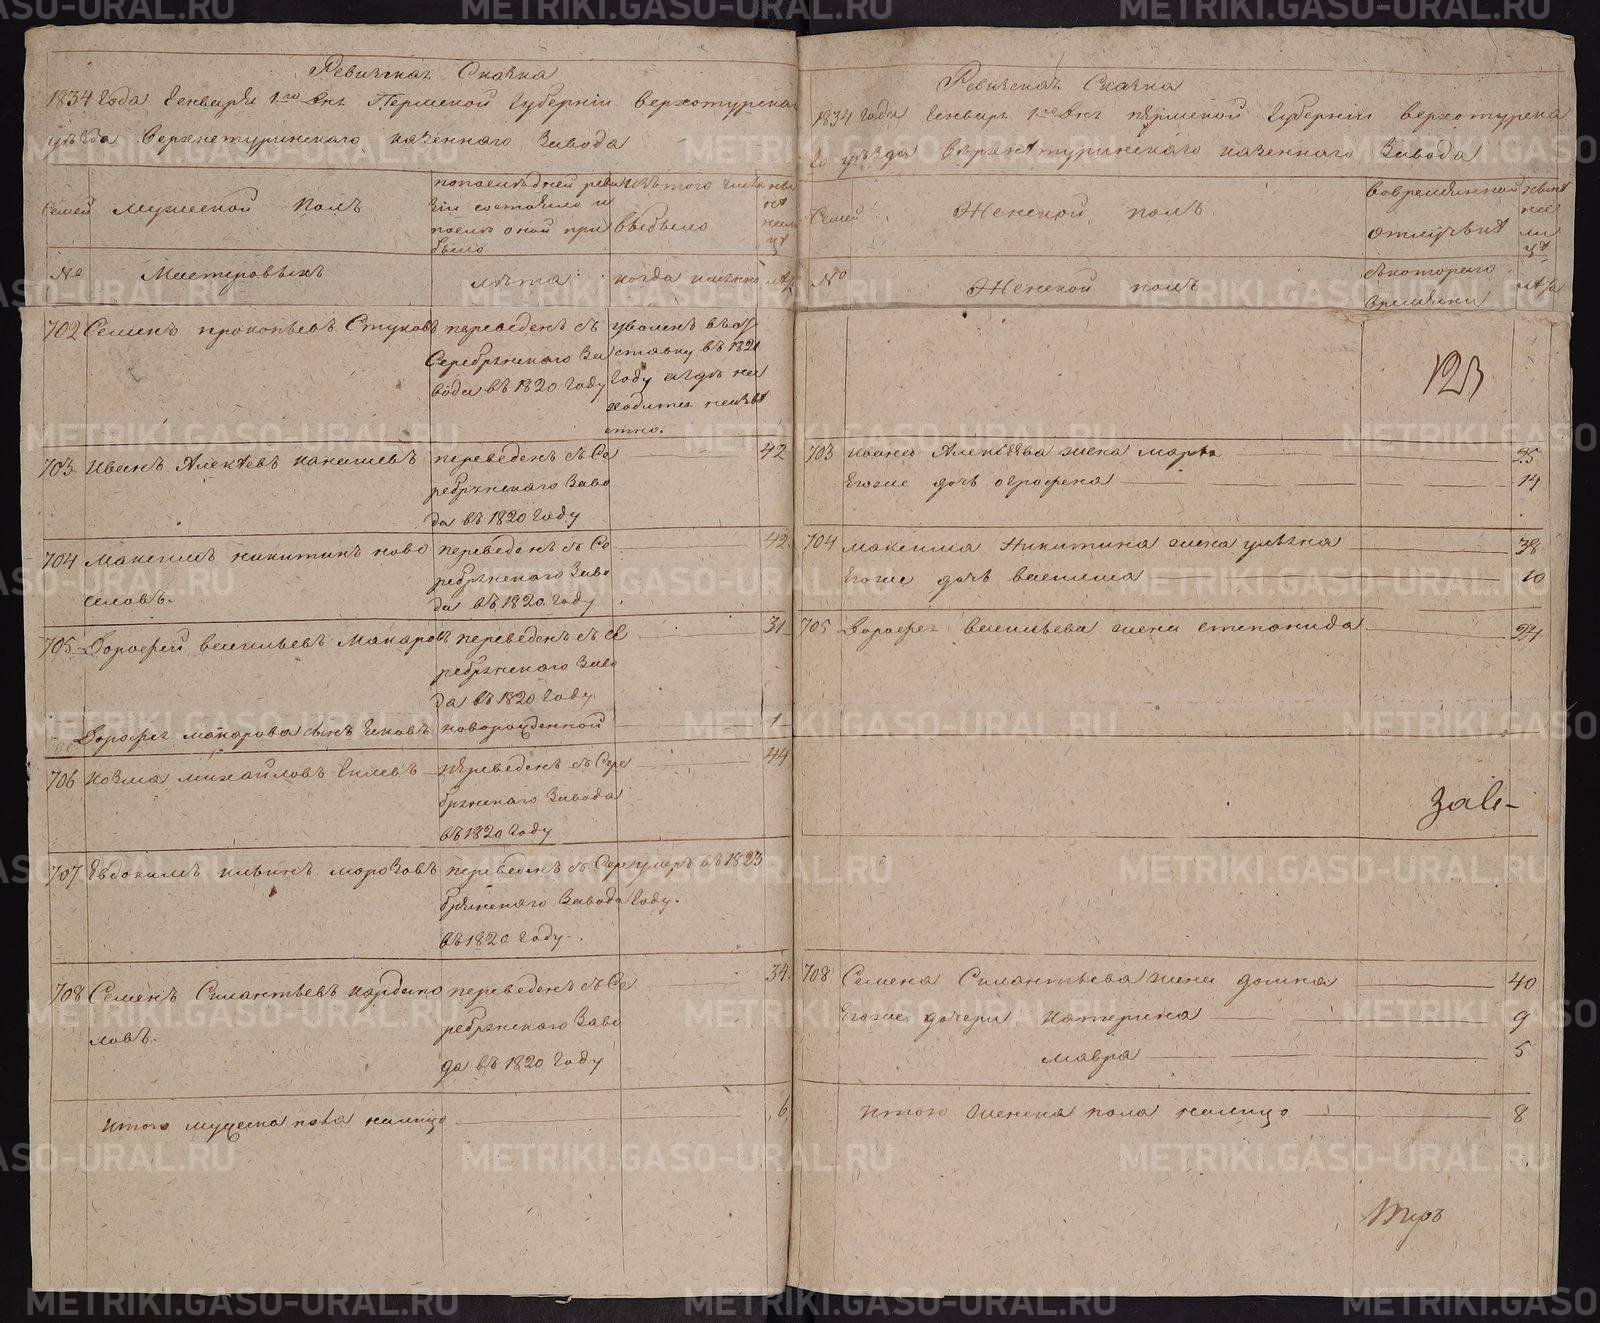 Ревизская Сказка
1834 Года Генваря 1го дня Пермской Губернии Верхотурска
уѣзда Верхнетуринского казеннаго Завода
Семей Мужеской полъ
попослѣдней реви
зіи состояло и
послѣ оной при
было
изъ того числа
выбыло
№ Мастеровыхъ лѣта когда имянно лѣта
702 Семенъ прокопьевъ Стуковъ переведенъ съ
Серебрянского За
вода въ 1820 Году
уволенъ въ от
ставку въ 1821
Году а гдѣ на
ходится неизвѣ
стно.
703 Иванъ Алексѣевъ переведенъ съ Се 42
ребрянскаго Заво
да въ 1820 Году
704 Максимъ никитинъ ново переведенъ съ Се 42
селовъ. ребрянскаго Заво
да въ 1820 Году
705 Дорофей васильевъ Макаровъ переведенъ съ Се 31
ребрянскаго Заво
да въ 1820 Году
Дорофея макарова сынъ новорожденной 1
706 Козма михайловъ переведенъ съ Сере 44
брянскаго Завода
въ 1820 Году
707 Евдокимъ ильинъ морозовъ переведенъ съ Сере умеръ въ 1823
брянскаго Завода Году.
въ 1820 Году.
708 Семенъ Силантьевъ кардапо переведенъ съ Се 34
ловъ. ребрянскаго Заво
да въ 1820 Году
итого мужеска пола налицо 6
Ревизская Сказка
1834 Года Генваря 1го дня пермской Губернии Верхотурска
го уѣзда Верхнетуринскаго казеннаго Завода
Семей Женской полъ
вовременной
отлучкѣ
№ Женской полъ
съкотораго
времяни
лѣта
123
703 Ивана Алексѣева жена марѳа 25
Егоже дочь аграфена 14
704 максима Никитина жена ульяна 38
Егоже дочь василиса 10
705 Дорофея васильева жена степанида 24
708 Семена Силантьева жена домна 40
Егоже дочери катерина 9
мавра 5
итого женска пола налицо 8
METRIKI.GASO-URAL.RU